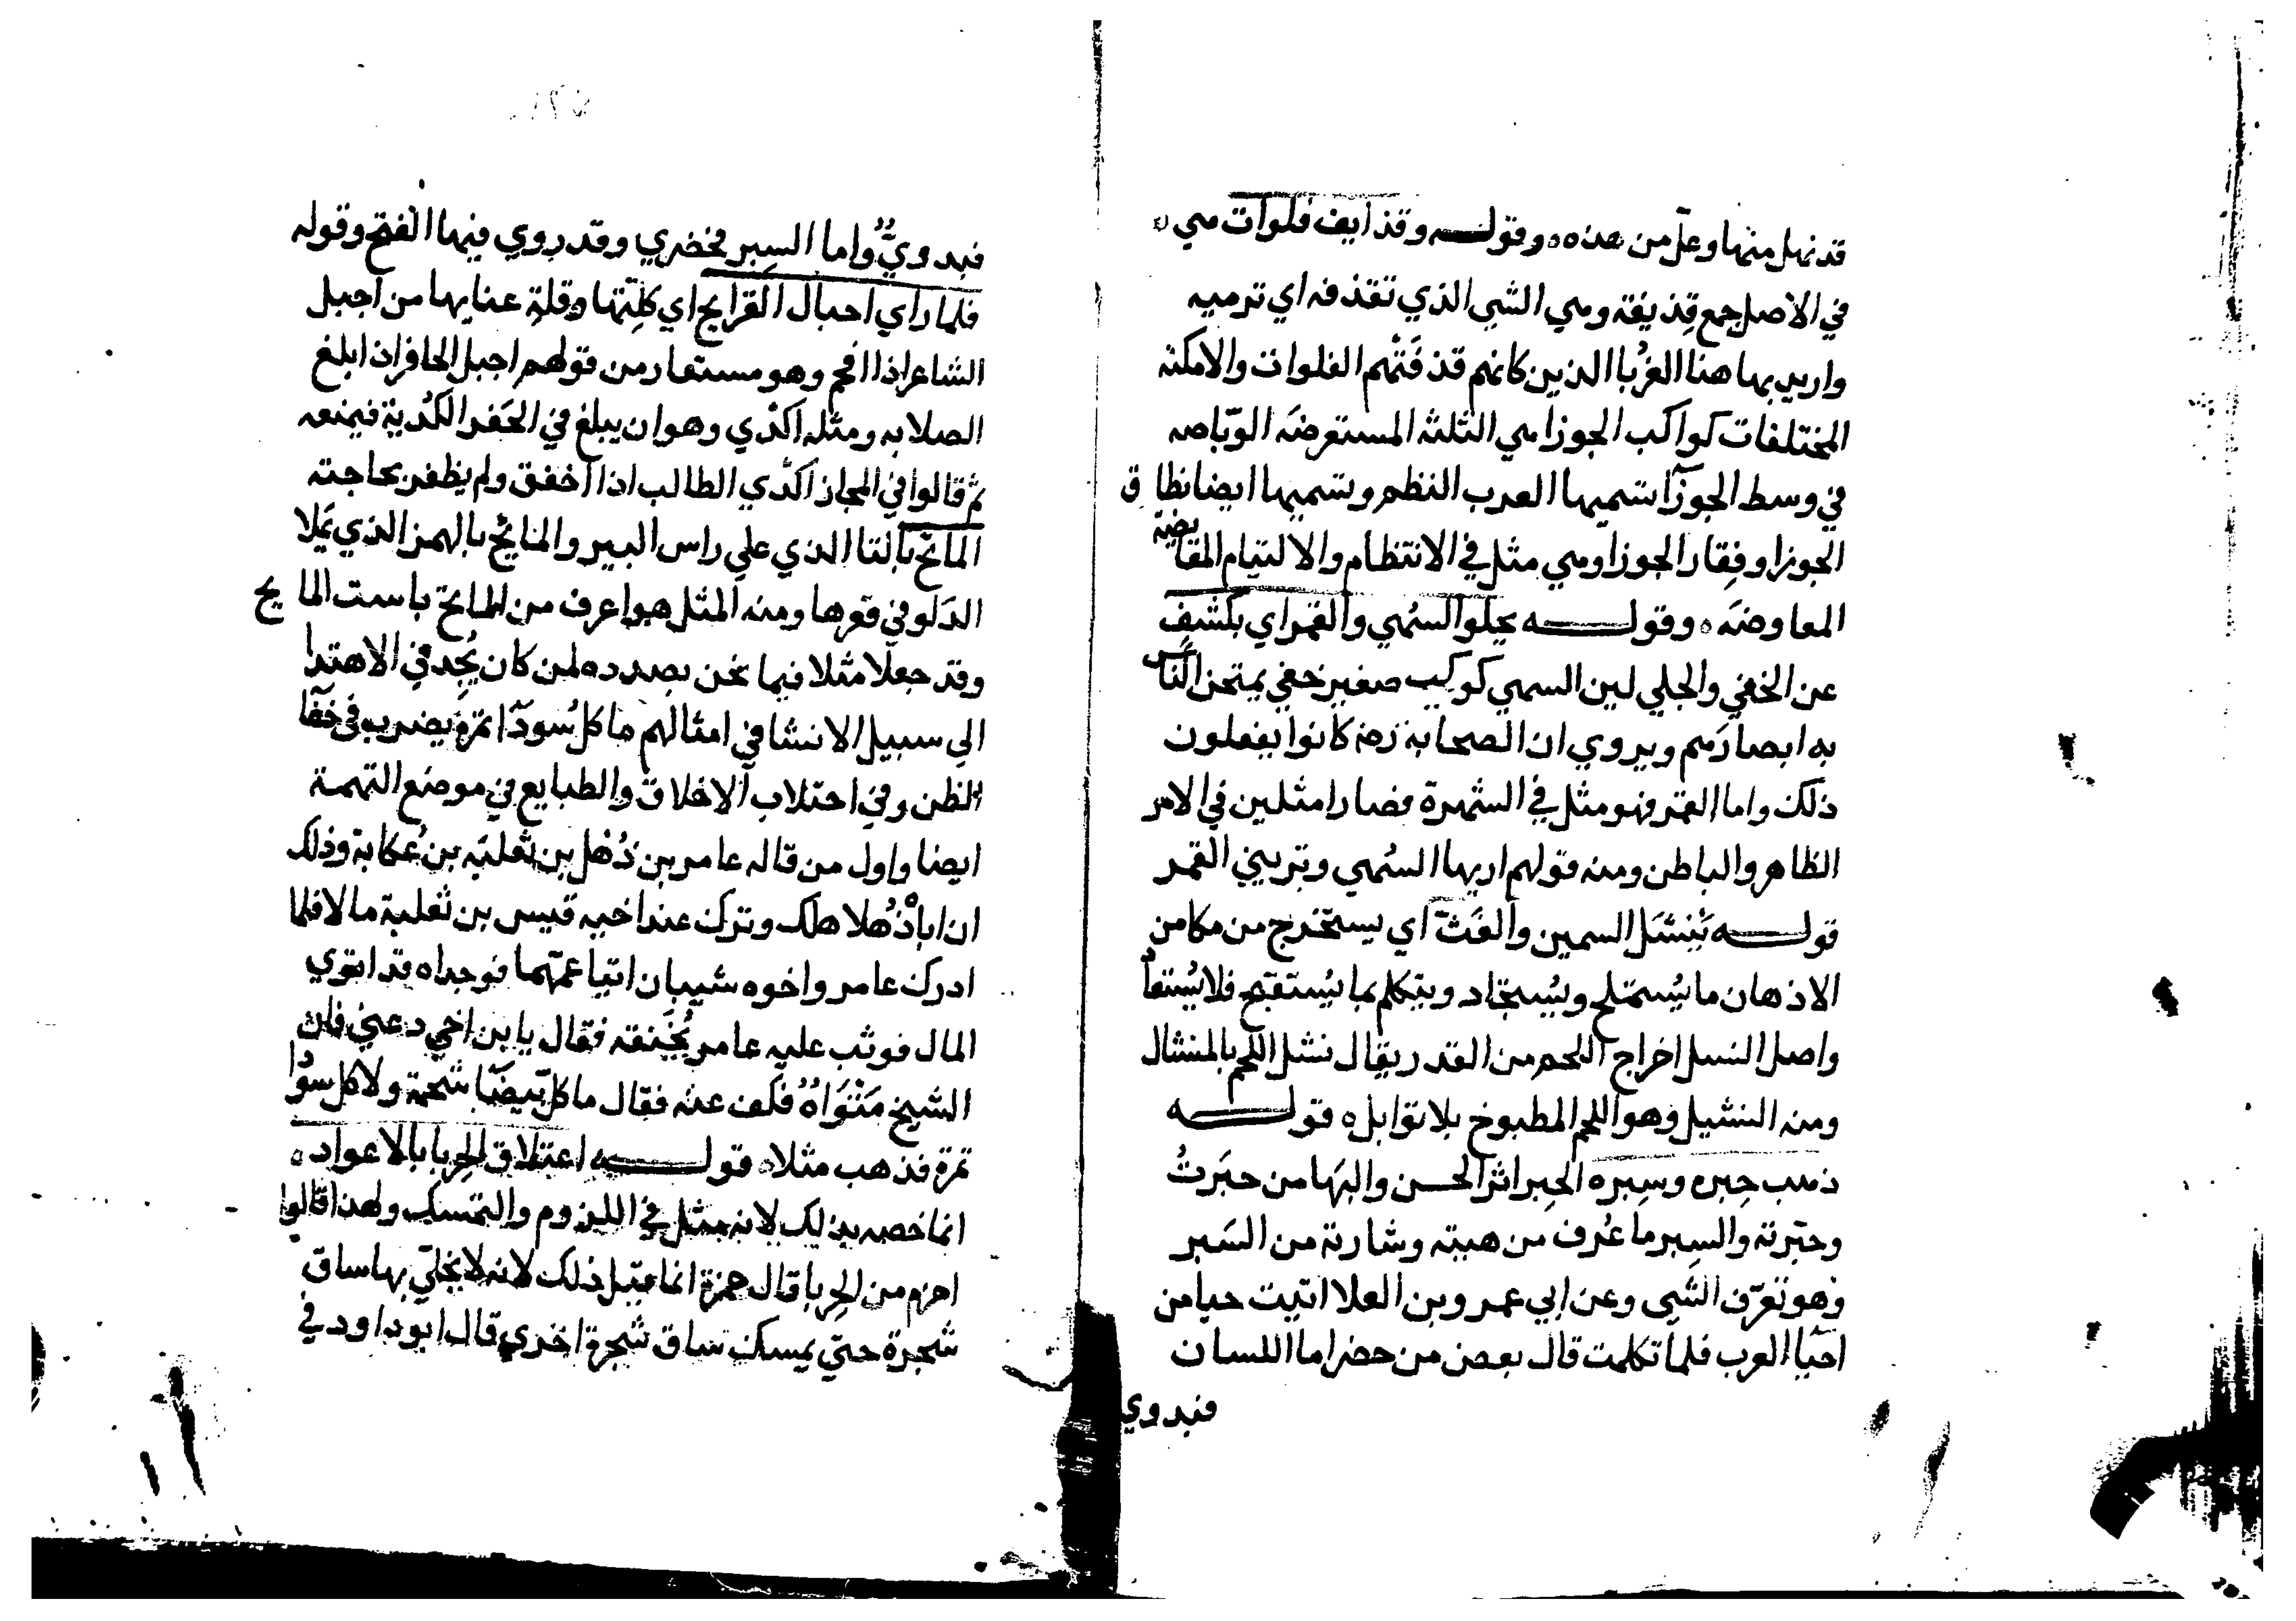 قد نهل منها وعلّ من هذه ٥ وقوله وقذايف فلوات هي
في الاصل جمع قِذيفة وهي الشي الذي تقذفه اي ترميه
واريد بها هنا الغُربا الذين كانهم قذفَتْهم الفلوات والامكنة
المختلفات كواكب الجوزا هي الثلثة المستعرضَة الوبّاصه
في وسط الجوزآ تسميها العرب النظم وتسميها ايضا نطاق
الجوزا وفِقار الجوزا وهي مثل في الانتظام والالتيام المقايضة
المعاوضَة ٥ وقوله يجلوا السُهي والقمر اي يكشف
عن الخفي والجلي لين السهي كوكب صغير خفي يمتحن الناس
به ابصارهم ويروي ان الصحابة رضه كانوا يفعلون
ذلك واما القمر فهو مثل في الشهرة فصارا مثلين في الامر
الظاهر والباطن ومنه قولهم اريها السُهي وتريني القمر
قوله يَنتشل السمين والغَثّ اي يستخرج من مكامن
الاذهان ما يُستملح ويُستجاد ويتكلم بما يُستقبح فلا يُستفاد
واصل النسل اخراج اللحم من القدر يقال نشل اللحم بالمنشال
ومنه النشيل وهو اللحم المطبوخ بلا توابل ٥ قوله
ذهب حِبره وسِبره الحِبر اثر الحسن والبَها من حبَرتُ
وحبّرته والسِبر ما عُرف من هيته وشارته من السَبر
وهو تعرّف الشي وعن ابي عمرو بن العلا اتيت حيا من
احيا العرب فلما تكلمت قال بعض من حضر اما اللسان
فبدوي
فبدويٌّ واما السِبر فحضري وقد روي فيها الفتح وقوله
فلما راي احبال القرايح اي كلّتها وقلة عنايها من اجبل
الشاعر اذا افحم وهو مستعار من قولهم اجبل الحافر اذا بلغ
الصلابه ومثله اكدَي وهو ان يبلغ في الحَفر الكُدية فيمنعه
ثم قالوا في المجاز اكدَي الطالب اذا اخفق ولم يظفر بحاجته
الماتح بالتا الذي علي راس البير والمايح بالهمز الذي يَملا
الدَلو في قعرها ومنه المثل هو اعرف من الماتح باست المايح
وقد جعلا مثلا فيما نحن بصدده لمن كان يُجد في الاهتدا
الي سبيل الانشا في امثالهم ما كل سُودَآ تمرة يضرب في خفآ
الظن وفي احتلاب الاخلاق والطبايع في موضع التهمة
ايضا واول من قاله عامر بن ذُهل بن ثعلبَه بن عُكابة وذلك
ان اباْ ذُهلا هلك وترك عند اخيه قيس بن ثعلبة مالا فلما
ادرك عامر واخوه شيبان اتيا عمّهما فوجداه قد اتوي
المال فوثب عليه عامر يُخَنقه فقال يا بن اخي دعني فان
الشيخ مَتْوَاهُ فكف عنه فقال ما كل بَيضَآ شحمة ولا كل سودا
تمرة فذهب مثلا ٥ قوله اعتلاق الحِربا بالاعواد ٥
انما خصه بذلك لانه مثل في اللزوم والتمسك ولهذا قالوا
احزم من الحِربا قال حمزة انما قيل ذلك لانه لا يخلّي بها ساق
شجرة حتي يمسك ساق شجرة اخري قال ابو داود في